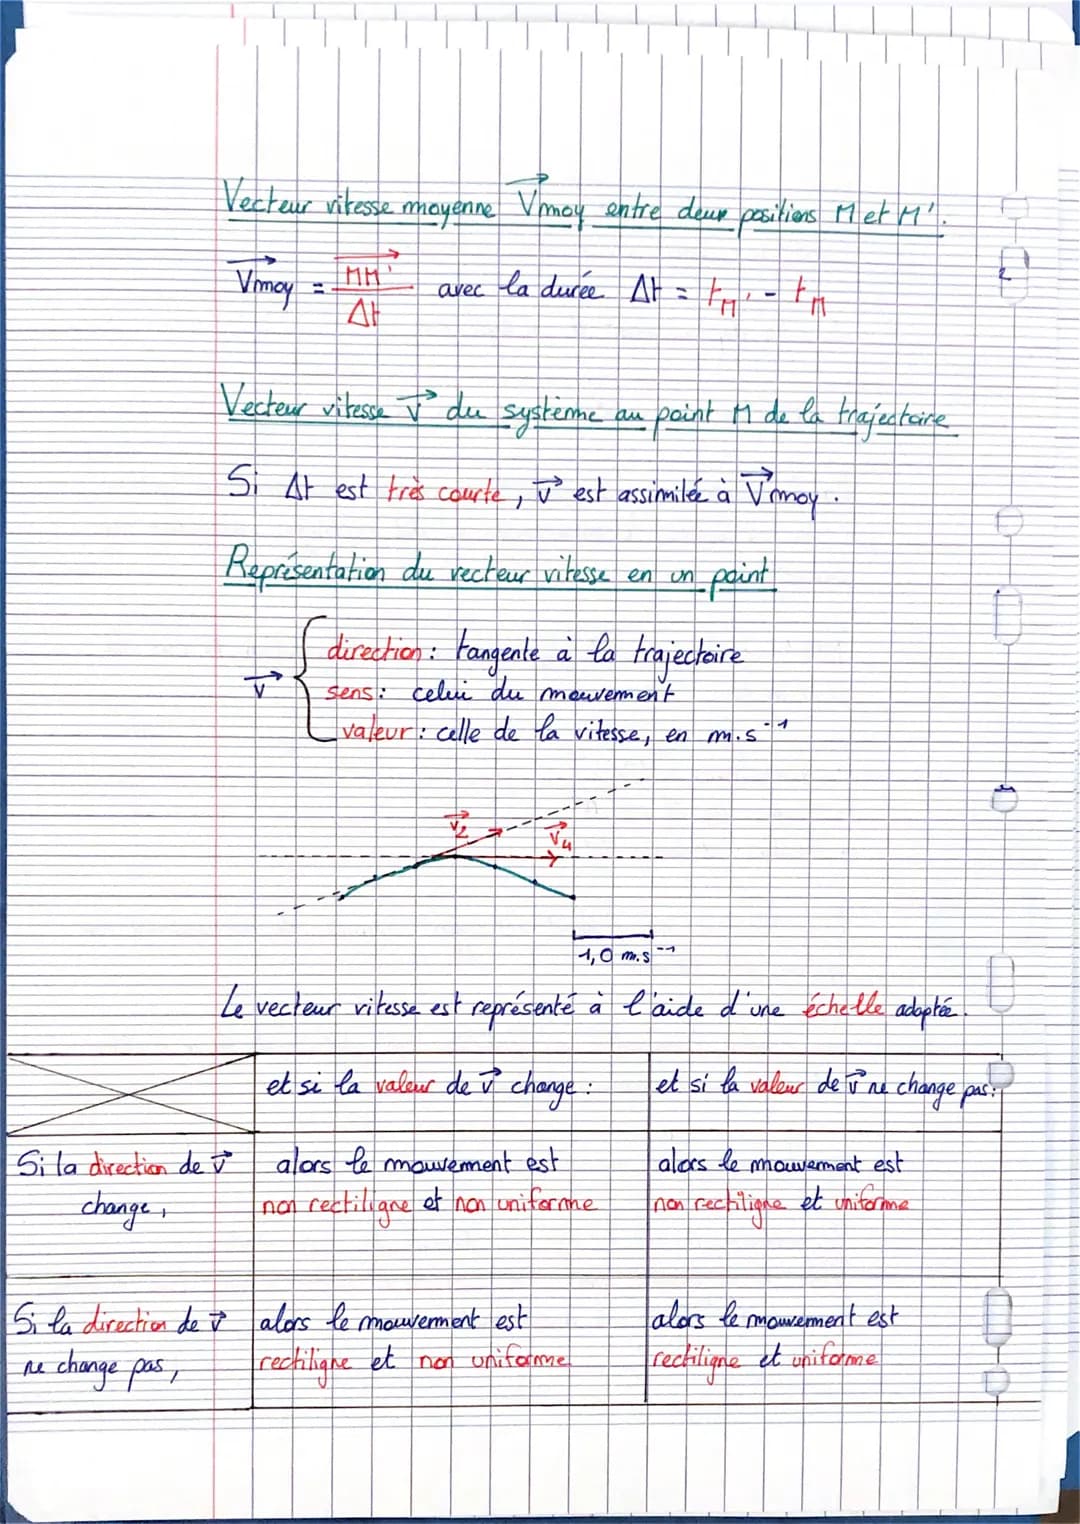 Vecteur vitesse moyenne V⃗moy entre deux positions M et M'.
V⃗moy = MM'⃗ / Δt avec la durée Δt = tM' - tM
Vecteur vitesse v⃗ du système au point M de la trajectoire
Si Δt est très courte, v⃗ est assimilée à V⃗moy.
Représentation du vecteur vitesse en un point
direction : tangente à la trajectoire
v⃗ { sens : celui du mouvement
valeur : celle de la vitesse, en m.s⁻¹
v⃗₂ v⃗₄
1,0 m.s⁻¹
Le vecteur vitesse est représenté à l'aide d'une échelle adaptée.
et si la valeur de v⃗ change :
et si la valeur de v⃗ ne change pas :
Si la direction de v⃗
change,
alors le mouvement est
non rectiligne et non uniforme
alors le mouvement est
non rectiligne et uniforme
Si la direction de v⃗
ne change pas,
alors le mouvement est
rectiligne et non uniforme
alors le mouvement est
rectiligne et uniforme